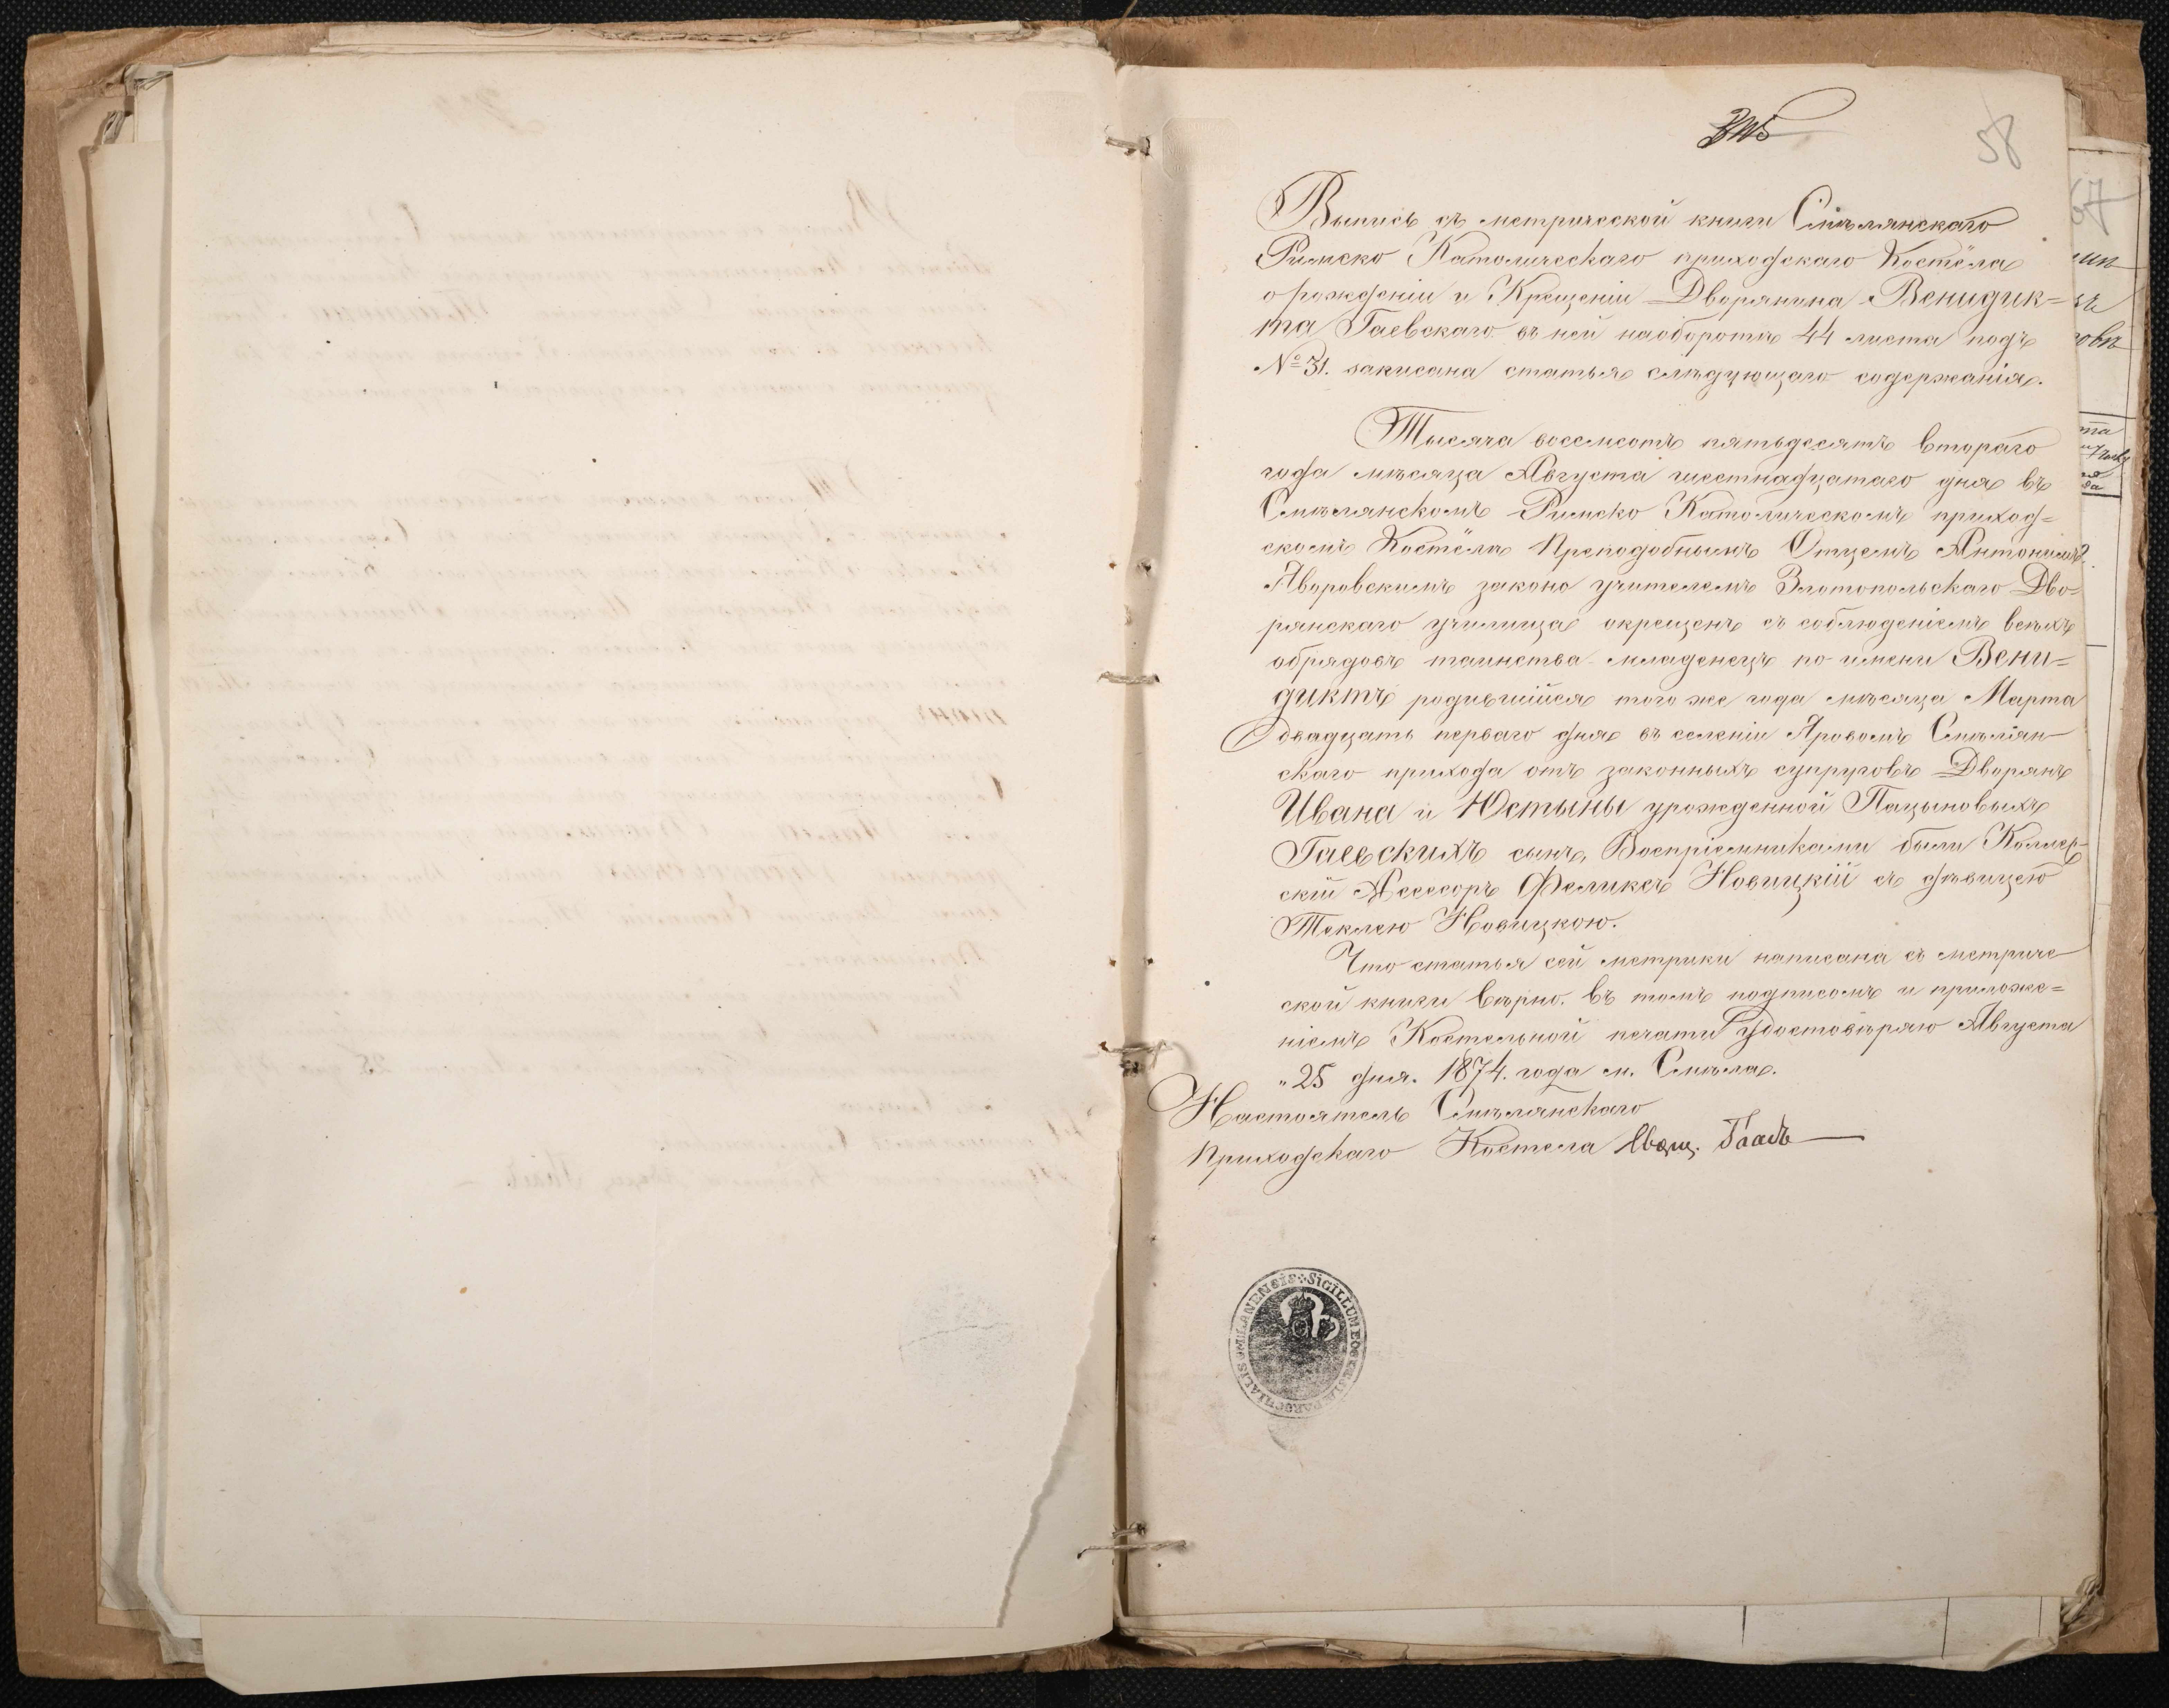 58
Выпись съ метрической книги Смѣлянскаго
Римско Католическаго приходскаго Костёла
о рожденіи и Крещеніи Дворянина Венидик=
та Гаевскаго въ ней наоборотѣ 44 листа подъ
№ 31. записана статья слѣдующаго содержанія.
Тысяча восемсотъ пятьдесятъ втораго
года мѣсяца Августа шестнадцатаго дня въ
Смѣлянскомъ Римско Католическомъ приход=
скомъ Костёлѣ Преподобнымъ Отцемъ Антониемъ
Яворовскимъ законо учителемъ Златопольскаго Дво=
рянскаго училища окрещенъ съ соблюденіемъ всѣхъ
обрядовъ таинства младенецъ по имени Вени=
диктъ родившійся того же года мѣсяца Марта
двадцать перваго дня въ селеніи Яровомъ Смѣлян
скаго прихода отъ законныхъ супруговъ Дворянъ
Ивана и Юстыны урожденной Пацыновыхъ
Гаевскихъ сынъ, Воспріемниками были Коллеж
скій Ассесоръ Феликсъ Новицкій съ дѣвицею
Теклею Новицкою.
Что статья сей метрики написана съ метриче
ской книги вѣрно. въ томъ подписомъ и приложе=
ніемъ Костельной печати удостовѣряю Августа
"25 дня. 1874. года м. Смѣла.
Настоятель Смѣлянскаго
Приходскаго Костела Свящ.
SIGILLUM ECCLESIÆ PAROCHIALIS SMILANENSIS
67